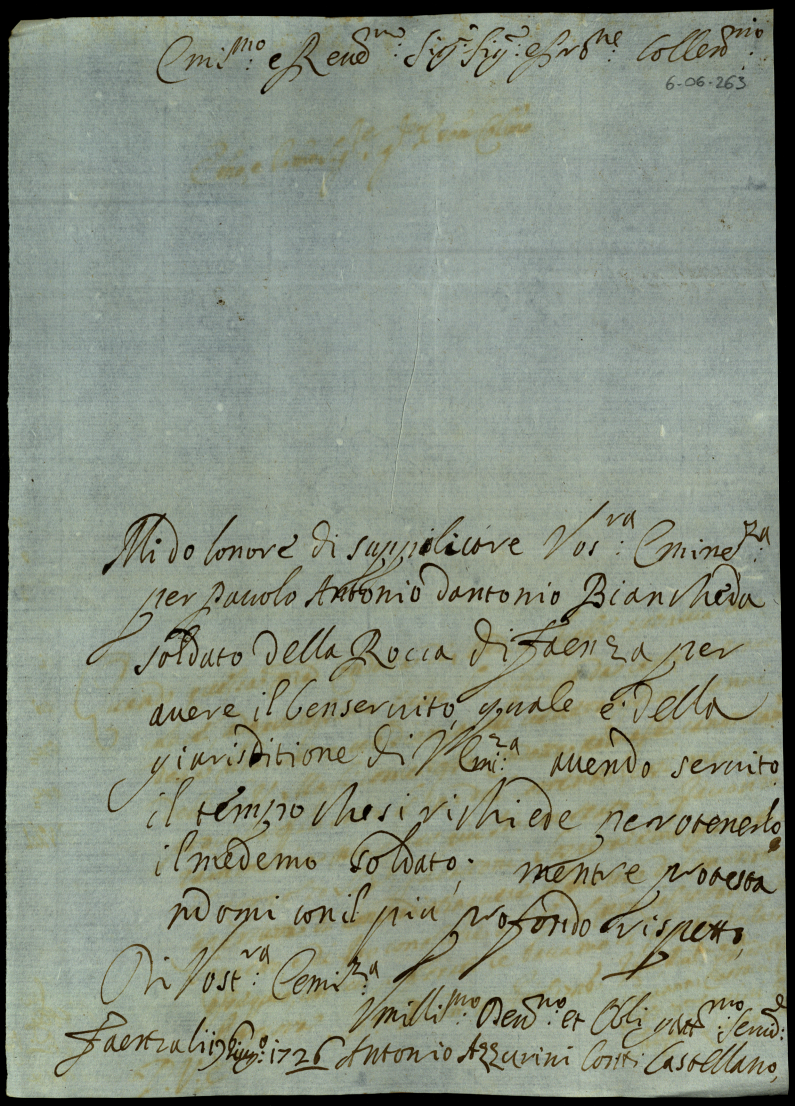 Emis.mo e Reued.mo Sig.r Sig.r e Pro.ne Collend.mo
6-06-263
Mi do lonore di suppilicare Vos.ra Eminen.za
per Pauolo Antonio dantonio Biancheda
soldato della Rocca di Faenza per
auere il benseruito, quale e della
giurisditione di V Emi.za auendo seruito
il tempo che si richiede per otenerlo
il medemo soldato; mentre protesta
ndomi con il più profondo rispetto,
Di Vost.ra Eemi.za
Vmillis.mo Deu.mo et Obligatt.mo Serud.e
Faenza li 1726 Antonio Azzurini Conti Castellano,